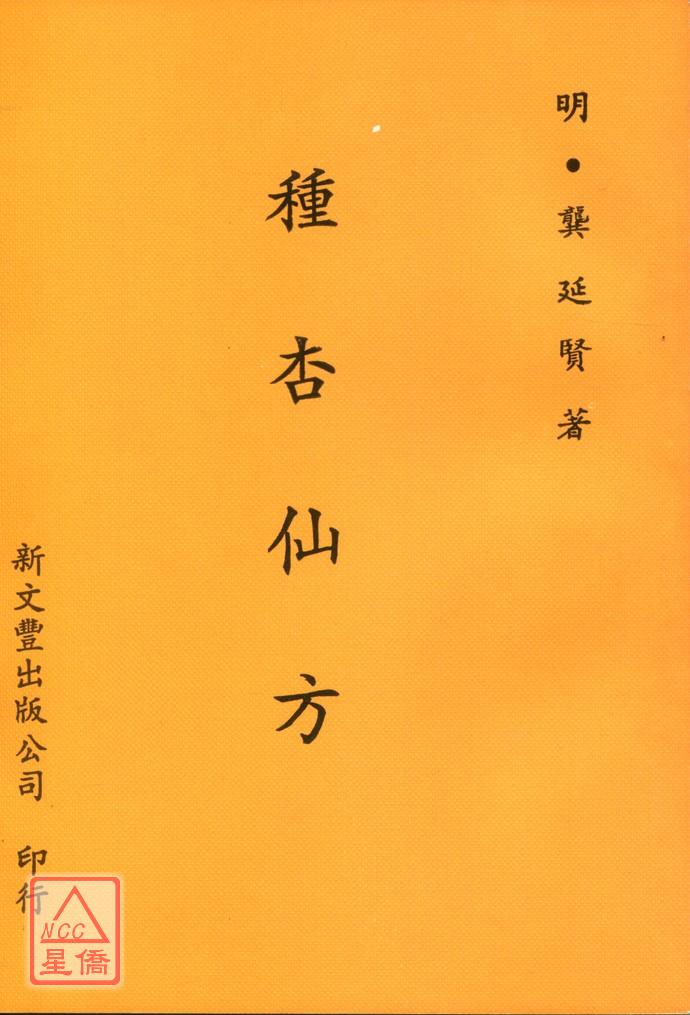 明•龔延賢著
種杏仙方
新文豐出版公司 印行
NCC
星僑